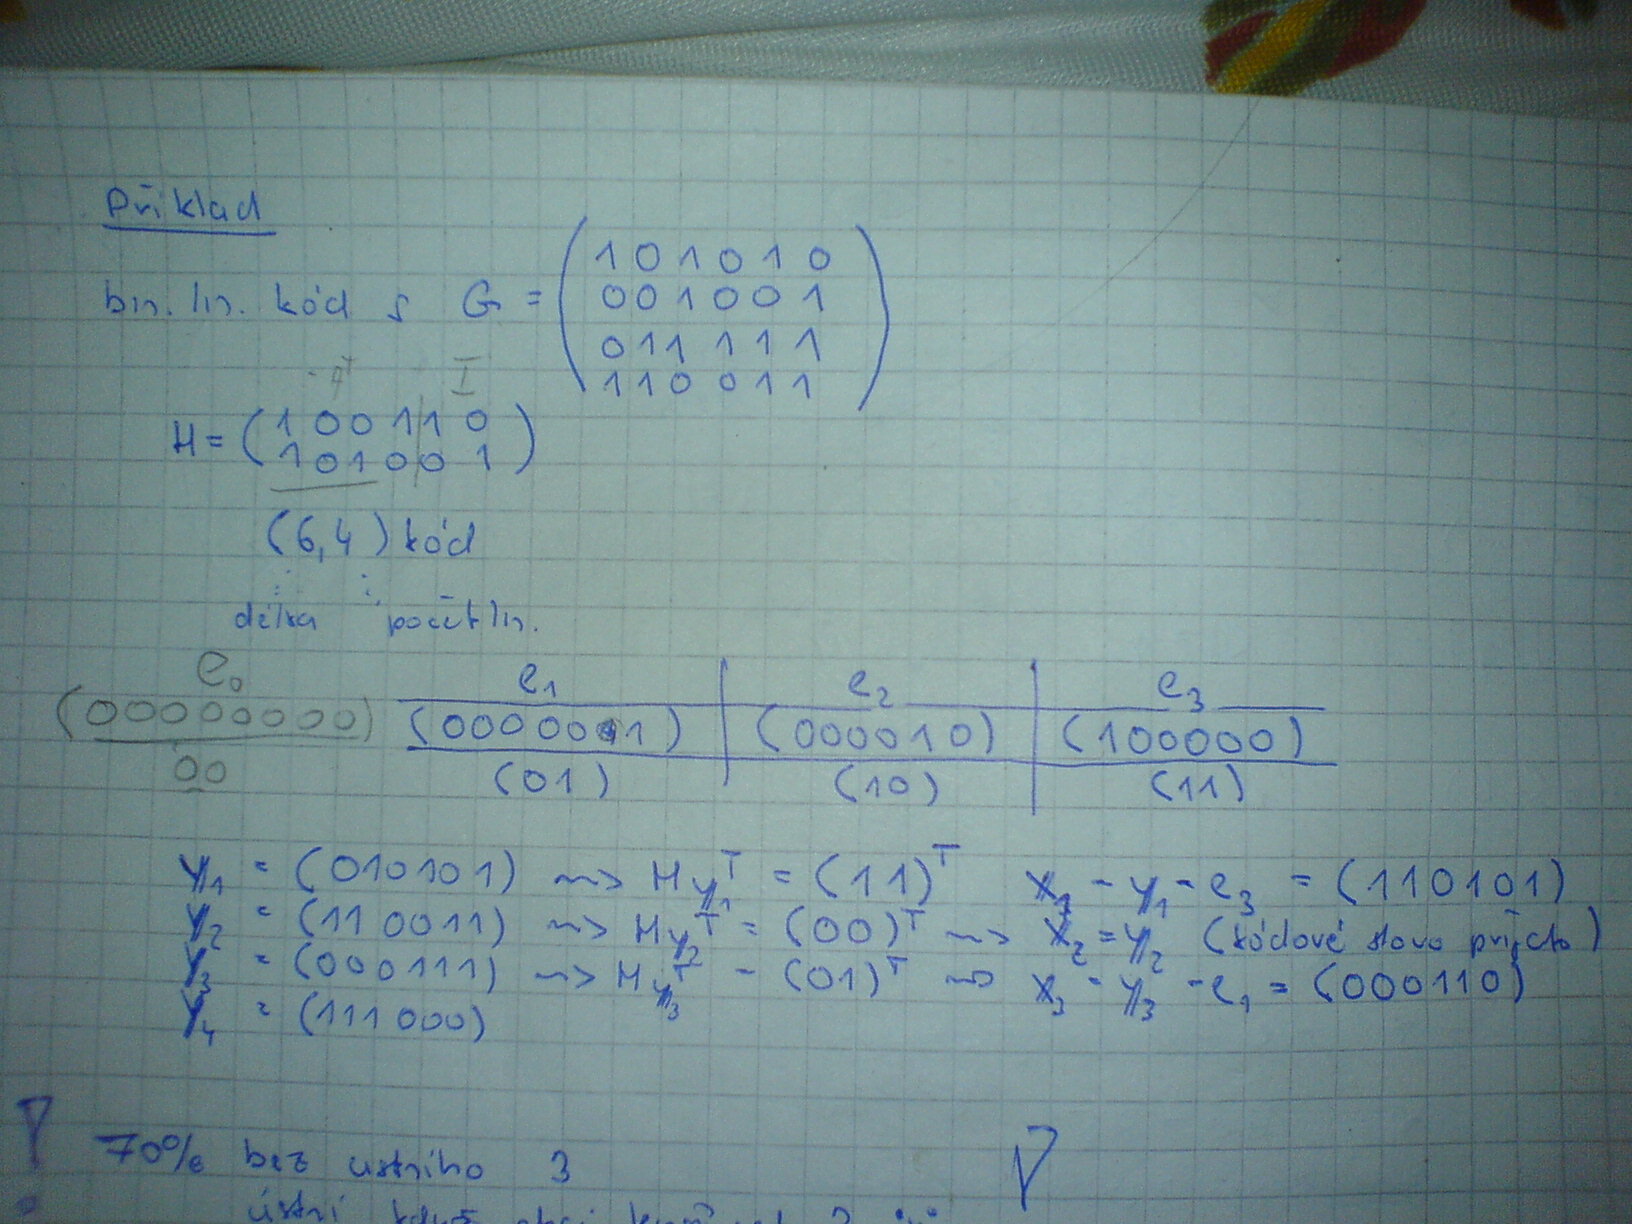 Příklad
bin. lin. kód s G = ( 1 0 1 0 1 0
0 0 1 0 0 1
0 1 1 1 1 1
1 1 0 0 1 1 )
I
H = ( 1 0 0 1 1 0
1 0 1 0 0 1 )
(6,4) kód
délka počet lin.
e₀ e₁ e₂ e₃
(00000000) (0000001) (000010) (100000)
00 (01) (10) (11)
y₁ = (010101) ~> Hy₁ᵀ = (11)ᵀ x₁ = y₁ - e₃ = (110101)
y₂ = (110011) ~> Hy₂ᵀ = (00)ᵀ ~> x₂ = y₂ (kódové slovo přijato)
y₃ = (000111) ~> Hy₃ᵀ = (01)ᵀ ~> x₃ = y₃ - e₁ = (000110)
y₄ = (111000)
! 70% bez ustního 3
ústní když